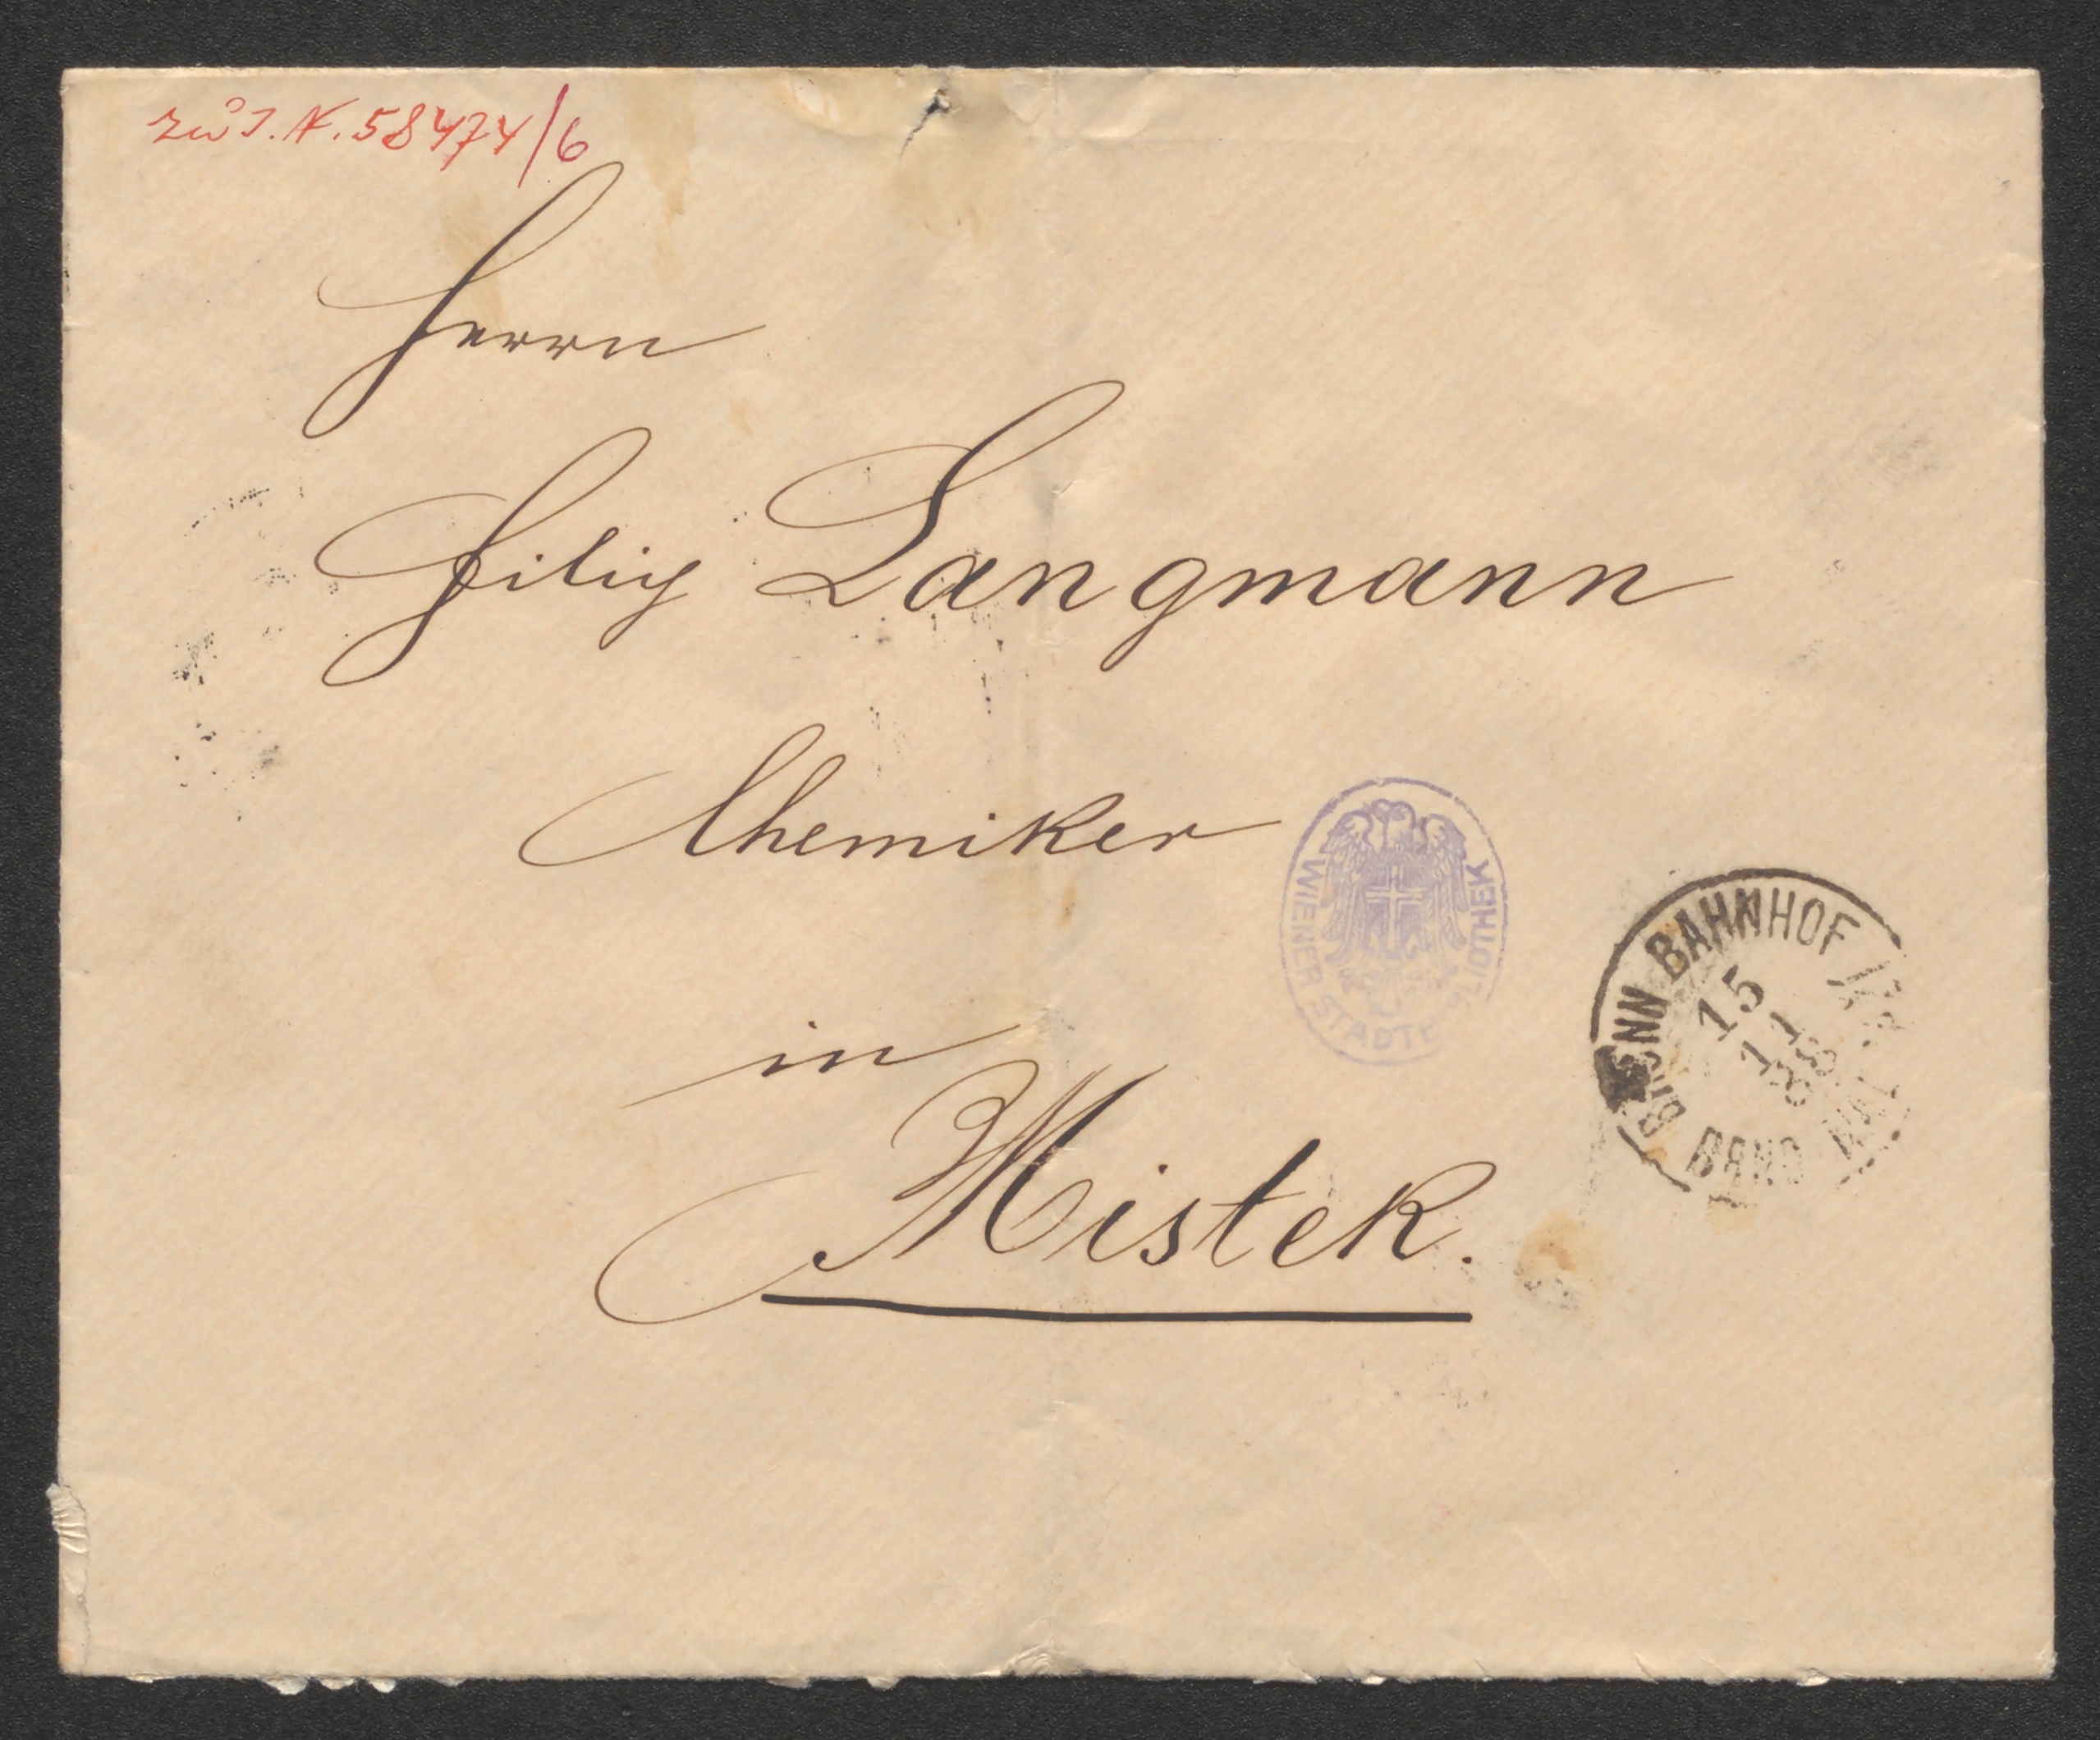 zu I.N. 58474/6
Herrn
Filip Langmann
Chemiker
in
Mistek.
WIENER STADTBIBLIOTHEK
BRÜNN BAHNHOF
15
BRNO